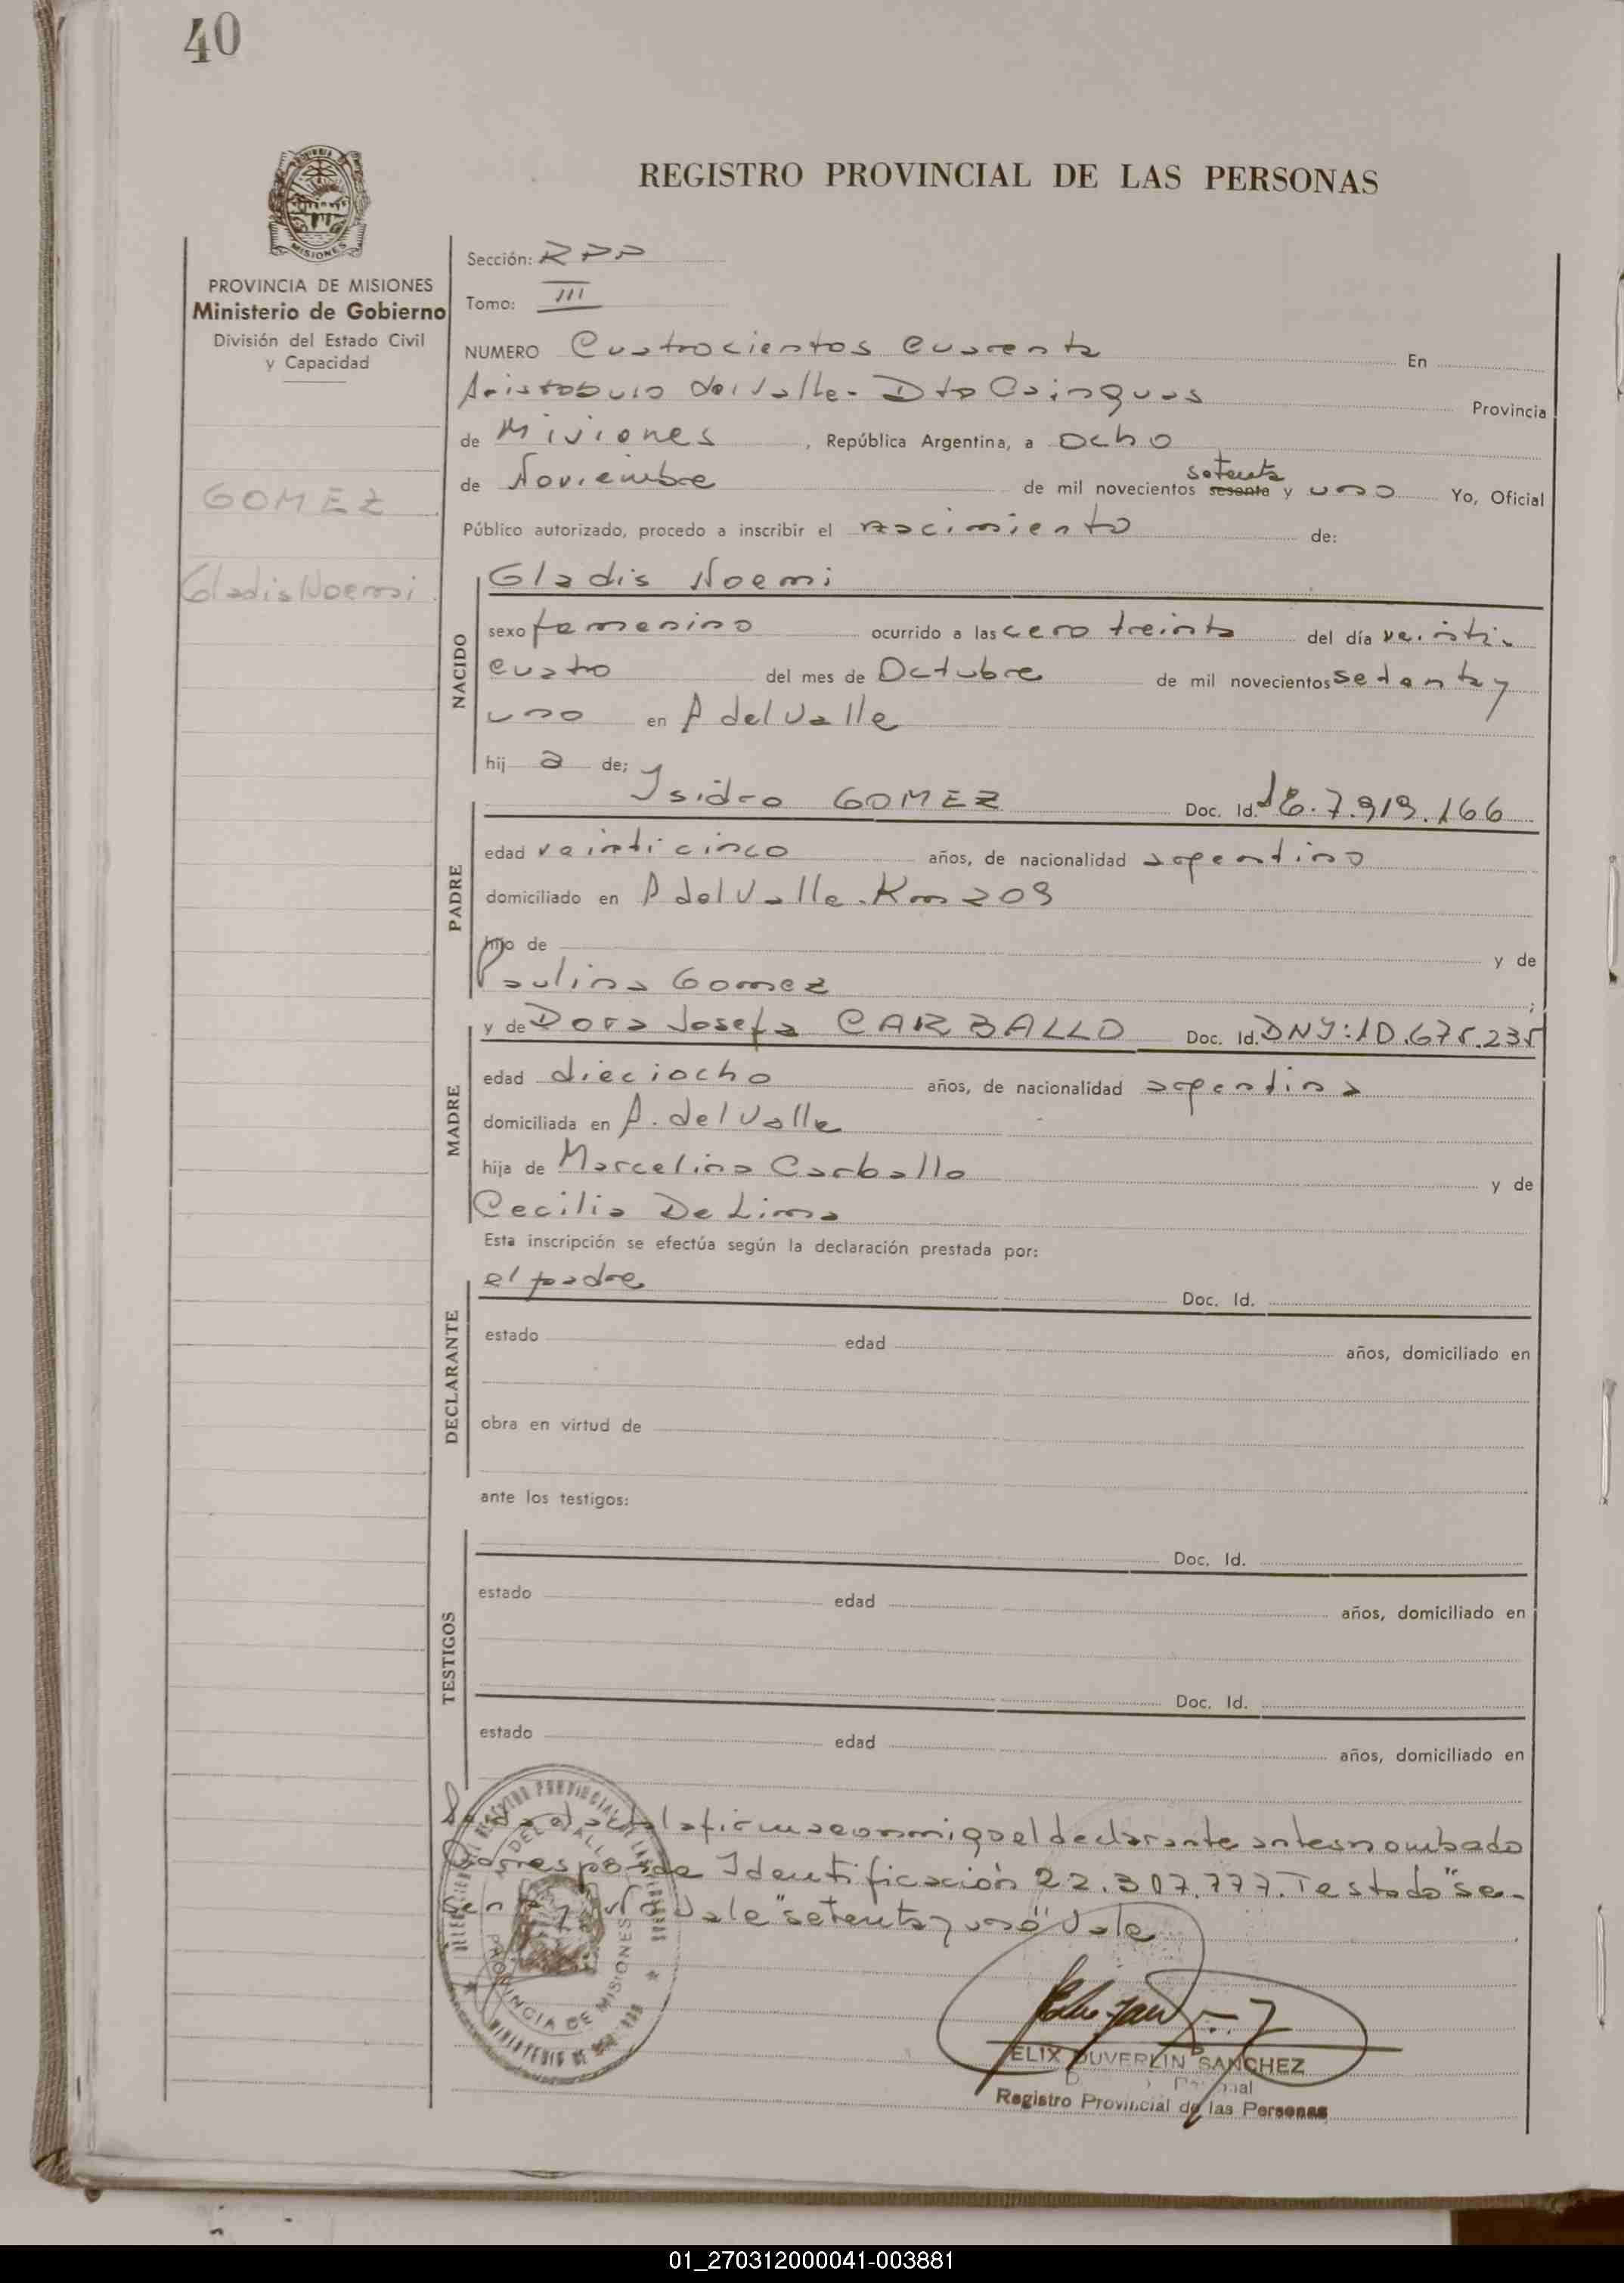 40
REGISTRO PROVINCIAL DE LAS PERSONAS
MISIONES
PROVINCIA DE MISIONES
Ministerio de Gobierno
División del Estado Civil
y Capacidad
GOMEZ
Gladis Noemi
Sección: RPP
Tomo: III
NUMERO Cuatrocientos Cuarenta En
Aristobulo del Valle - Dto Cainguas Provincia
de Misiones, República Argentina, a ocho
setenta
de Noviembre de mil novecientos sesenta y uno Yo, Oficial
Público autorizado, procedo a inscribir el nacimiento de:
NACIDO
Gladis Noemi
sexo femenino ocurrido a las cero treinta del día veinti-
cuatro del mes de Octubre de mil novecientos setenta y
uno en A del Valle
hij a de;
PADRE
Isidro GOMEZ Doc. Id. 7.919.166
edad veinticinco años, de nacionalidad argentino
domiciliado en A del Valle. Km 209
hijo de y de
Paulina Gomez ;
MADRE
y de Dora Josefa CARBALLO Doc. Id. DNI: 10.675.235
edad dieciocho años, de nacionalidad argentina
domiciliada en A. del Valle
hija de Marcelino Carballo y de
Cecilia De Lima
Esta inscripción se efectúa según la declaración prestada por:
DECLARANTE
el padre Doc. Id.
estado edad años, domiciliado en
obra en virtud de
ante los testigos:
TESTIGOS
Doc. Id.
estado edad años, domiciliado en
Doc. Id.
estado edad años, domiciliado en
la firma conmigo el declarante antes nombado
Corresponde Identificación 22.307.777. Testado "se-
Vale "setenta y uno" Vale
A. DEL VALLE
PROVINCIA DE MISIONES
ELIX DUVERLIN SANCHEZ
Registro Provincial de las Personas
01_270312000041-003881